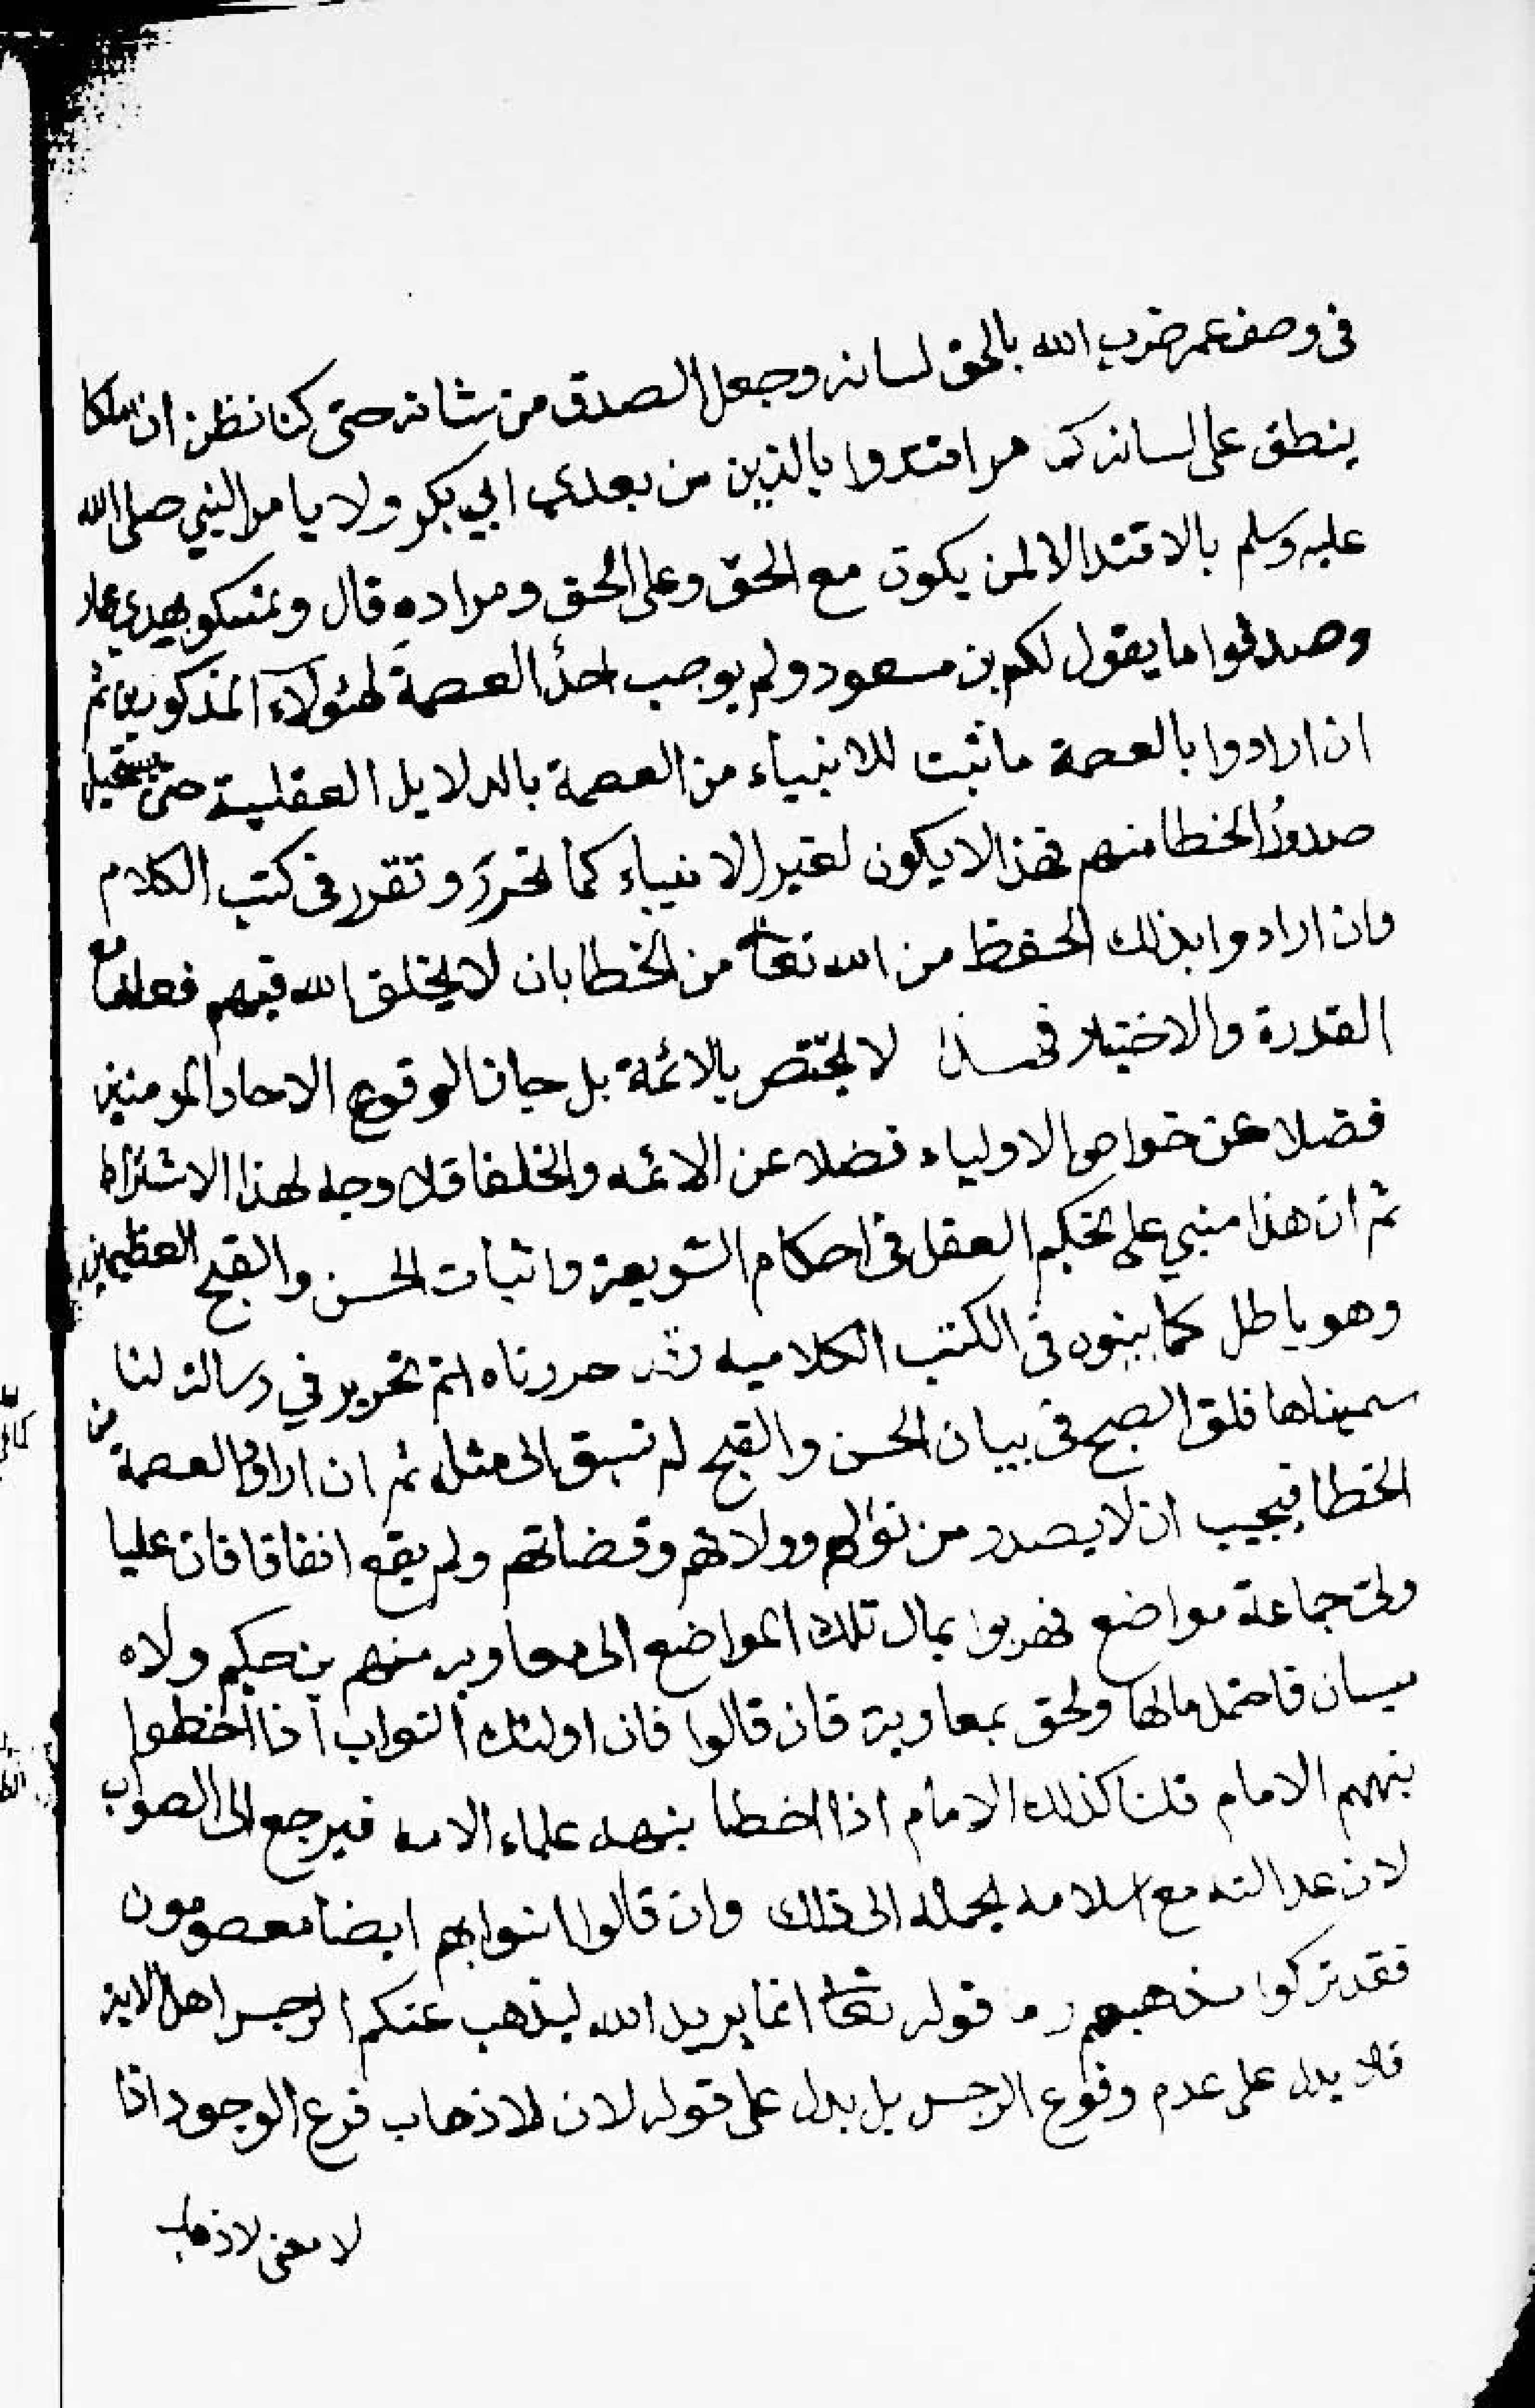 في وصف عمر ضرب الله بالحق لسانه وجعل الصدق من شانه حتى كنا نظن ان ملكا
ينطق على لسانه كما مر اقتدوا بالذين من بعدي ابي بكر ولا يامر النبي صلى الله
عليه وسلم بالاقتدا الا لمن يكون مع الحق وعلى الحق ومراده قال وتمسكو بهدي عمار
وصدقوا ما يقول لكم بن مسعود ولم يوجب احدُ العصمة لهئولآء المذكورين ثم
ان ارادوا بالعصمة ما ثبت للانبياء من العصمة بالدلايل العقلية حتى يستحيل
صدورُ الخطا منهم فهذا لا يكون لغير الانبياء كما تحررَ وتقرر في كتب الكلام
وان ارادوا بذلك الحفظ من الله تعا من الخطا بان لا يخلق الله فيهم فعلها مع
القدرة والاختيار لا يختص بالائمة بل جاز الوقوع الاحاد المومنين
فضلا عن خواص الاولياء فضلا عن الائمه والخلفا فلا وجه لهذا الاشتراط
ثم ان هذا مبني على تحكيم العقل في احكام الشريعة واثبات الحسن والقبح العظيمين
وهو باطل كما بينوه في الكتب الكلاميه حررناه اتم تحرير في رسالة لنا
سميناها فلق الصبح في بيان الحسن والقبح لم نسبق الى مثله ثم ان ارادوا العصمة من
الخطا فيجب ان لا يصدر من نوابهم وولاتهم وقضاتهم ولم يقع اتفاقا فان عليا
ولى جماعة مواضع فهربوا بمال تلك المواضع الى معاويه منهم بن حكيم ولاه
ميسان فاحتمل مالها ولحق بمعاوية فان قالوا فان اولئك النواب اذا اخطوا
ينبههم الامام قلنا كذلك الامام اذا اخطا ينبهه علماء الامه فيرجع الى الصواب
لان عدالته مع اسلامه يحمله الى ذلك وان قالوا نوابهم ايضا معصومون
فقد تركوا مذهبهم قوله تعا انما يريد الله ليذهب عنكم الرجس اهل الايه
فلا يدل على عدم وقوع الرجس بل يدل على قوله لان الاذهاب فرع الوجود اذا
لا معنى لاذهاب